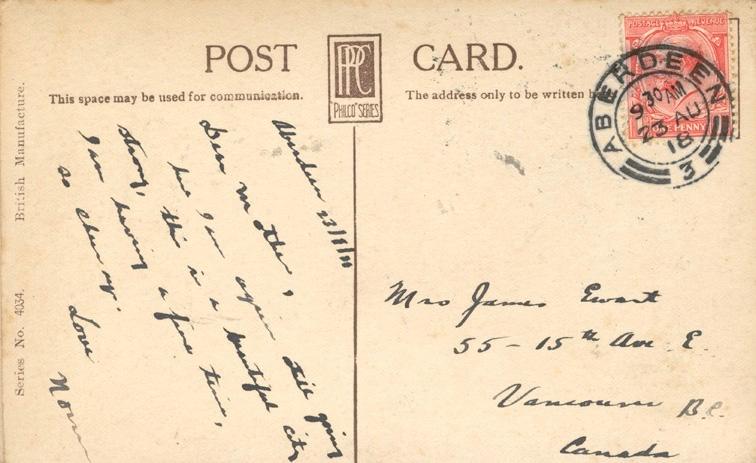 POST CARD.
PPC
"PHILCO" SERIES
This space may be used for communication.
The address only to be written
POSTAGE REVENUE
ONE PENNY
ABERDEEN
9 30 AM
23 AU
18
3
British Manufacture.
Series No. 4034.
Aberdeen 23/8/18
Dear Mother,
here I am again still going
strong, this is a beautiful city
I am having a fine time,
so cheer up.
Love
Norm
Mrs James Ewart
55 - 15th Ave E.
Vancouver B.C.
Canada